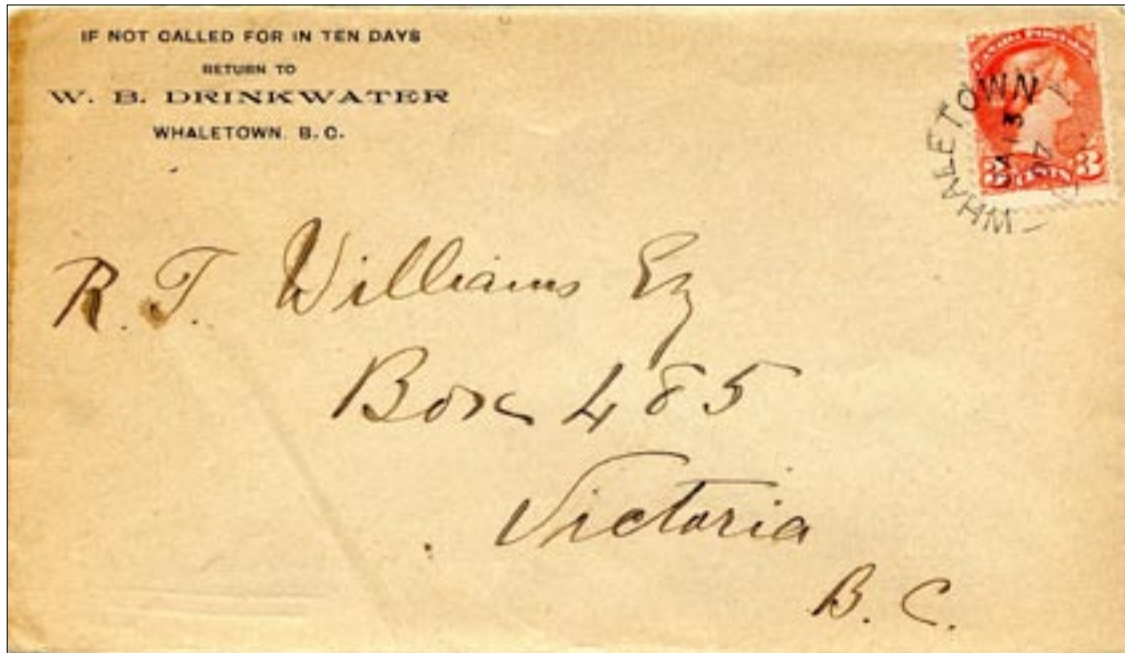 IF NOT CALLED FOR IN TEN DAYS
RETURN TO
W. B. DRINKWATER
WHALETOWN, B. C.
CANADA POSTAGE
WHALETOWN
13
97
3 CENTS 3
R. T. Williams Esq
Box 485
Victoria
B. C.